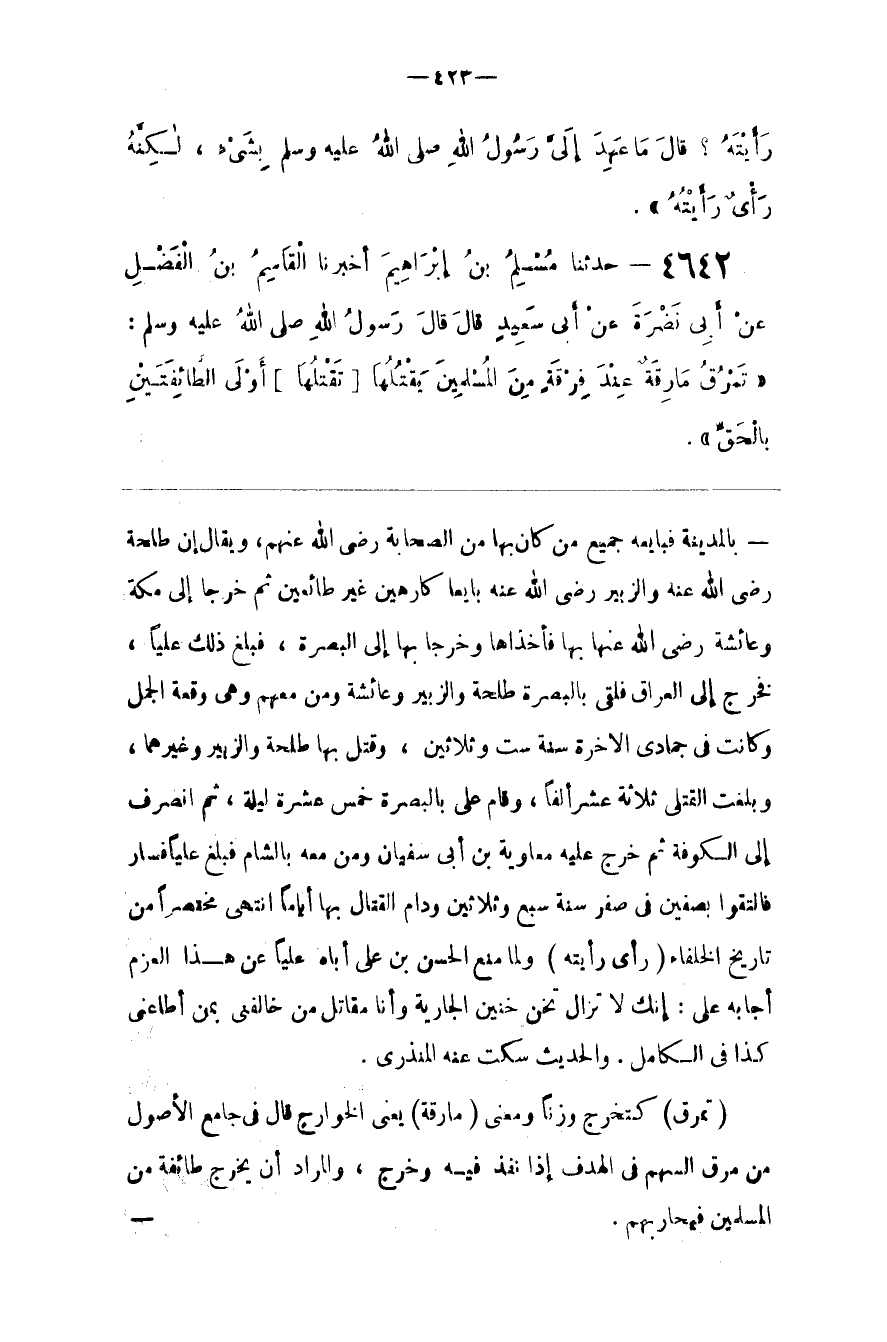 — ٤٢٣ —
رَأَيْتَهُ ؟ قالَ مَا عَهِدَ إِلَىَّ رَسُولُ اللهِ صلى اللهُ عليه وسلم بِشَىْءٍ ، لٰـكِنَّهُ
رَأْىٌ رَأَيْتُهُ » .
٤٦٤٢ — حدثنا مُسْلِمُ بنُ إِبْرَاهِيمَ أخبرنا الْقَاسِمُ بنُ الْفَضْـلِ
عنْ أَبِى نَضْرَةَ عنْ أَبى سَعِيدٍ قالَ قالَ رَسولُ اللهِ صلى اللهُ عليه وسلم :
« تَمْرُقُ مَارِقَةٌ عِنْدَ فِرْقَةٍ مِنَ المُسْلِمِينَ يَقْتُلُهَا [ تَقْتلُهَا ] أَوْلَى الطَّائِفَتَـيْنِ
بالْحَقِّ » .
— بالمدينة فبايعه جميع من كان بها من الصحابة رضى الله عنهم، ويقال إن طلحة
رضى الله عنه والزبير رضى الله عنه بايعا كارهين غير طائعين ثم خرجا إلى مكة
وعائشة رضى الله عنها بها فأخذاها وخرجا بها إلى البصرة ، فبلغ ذلك علياً ،
فخرج إلى العراق فلقى بالبصرة طلحة والزبير وعائشة ومن معهم وهى وقعة الجمل
وكانت فى جمادى الاخرة سنة ست وثلاثين ، وقتل بها طلحة والزبير وغيرهما ،
وبلغت القتلى ثلاثة عشر ألفاً ، وقام على بالبصرة خمس عشرة ليلة ، ثم انصرف
إلى الـكوفة ثم خرج عليه معاوية بن أبى سفيان ومن معه بالشام فبلغ علياً فسار
فالتقوا بصفين فى صفر سنة سبع وثلاثين ودام القتال بها أياماً انتهى مختصراً من
تاريخ الخلفاء ( رأى رأيته ) ولما منع الحسن بن على أباه علياً عن هـــذا العزم
أجابه على : إنك لا تزال تخن خنين الجارية وأنا مقاتل من خالفنى بمن أطاعنى
كذا فى الـكامل . والحديث سكت عنه المنذرى .
( تمرق ) كتخرج وزناً ومعنى ( مارقة ) يعنى الخوارج قال فى جامع الأصول
من مرق السهم فى الهدف إذا نفذ فيـه وخرج ، والمراد أن يخرج طائفة من
المسلمين فيحاربهم . —